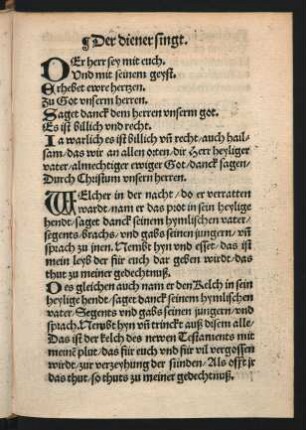 ¶Der diener singt.
DEr herr sey mit euch.
Vnd mit seinem geyst.
Erhebet ewre hertzen.
Zu Got vnserm herren.
Saget danck dem herren vnserm got.
Es ist billich vnd recht.
Ia warlich es ist billich vñ recht/auch hail-
sam/das wir an allen oten/dir Herr heyliger
vater/almechtiger ewiger Got/danck sagen/
Durch Christum vnsern herren.
WElcher in der nacht/do er verratten
wardt/nam er das prot in sein heylige
hendt/saget danck seinem hymlischen vater/
segents/brachs/vnd gabs seinen jungern/vñ
sprach zu jnen. Nembt hyn vnd esset/das ist
mein leyb der für euch dar geben wirdt/das
thut zu meiner gedechtnuß.
Des gleichen auch nam er den Kelch in sein
heylige hendt/saget danck seinem hymlischen
vater/Segents vnd gabs seinen jungern/vnd
sprach. Nembt hyn vñ trinckt auß disem alle/
Das ist der kelch des newen Testaments mit
meinē plut/das für euch vnd für vil vergossen
wirdt/zur verzeyhung der sünden/Als offt jr
das thut/so thuts zu meiner gedechtnuß.